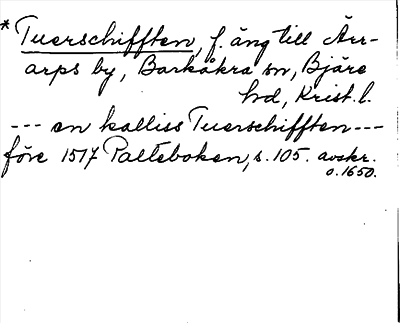 * Tuerschifften, f. äng till Ärr-
arps by, Barkåkra sn, Bjäre
hd, Krist. l.
--- en kalliss Tuerschifften ---
före 1517 Palteboken, s. 105. avskr.
o. 1650.